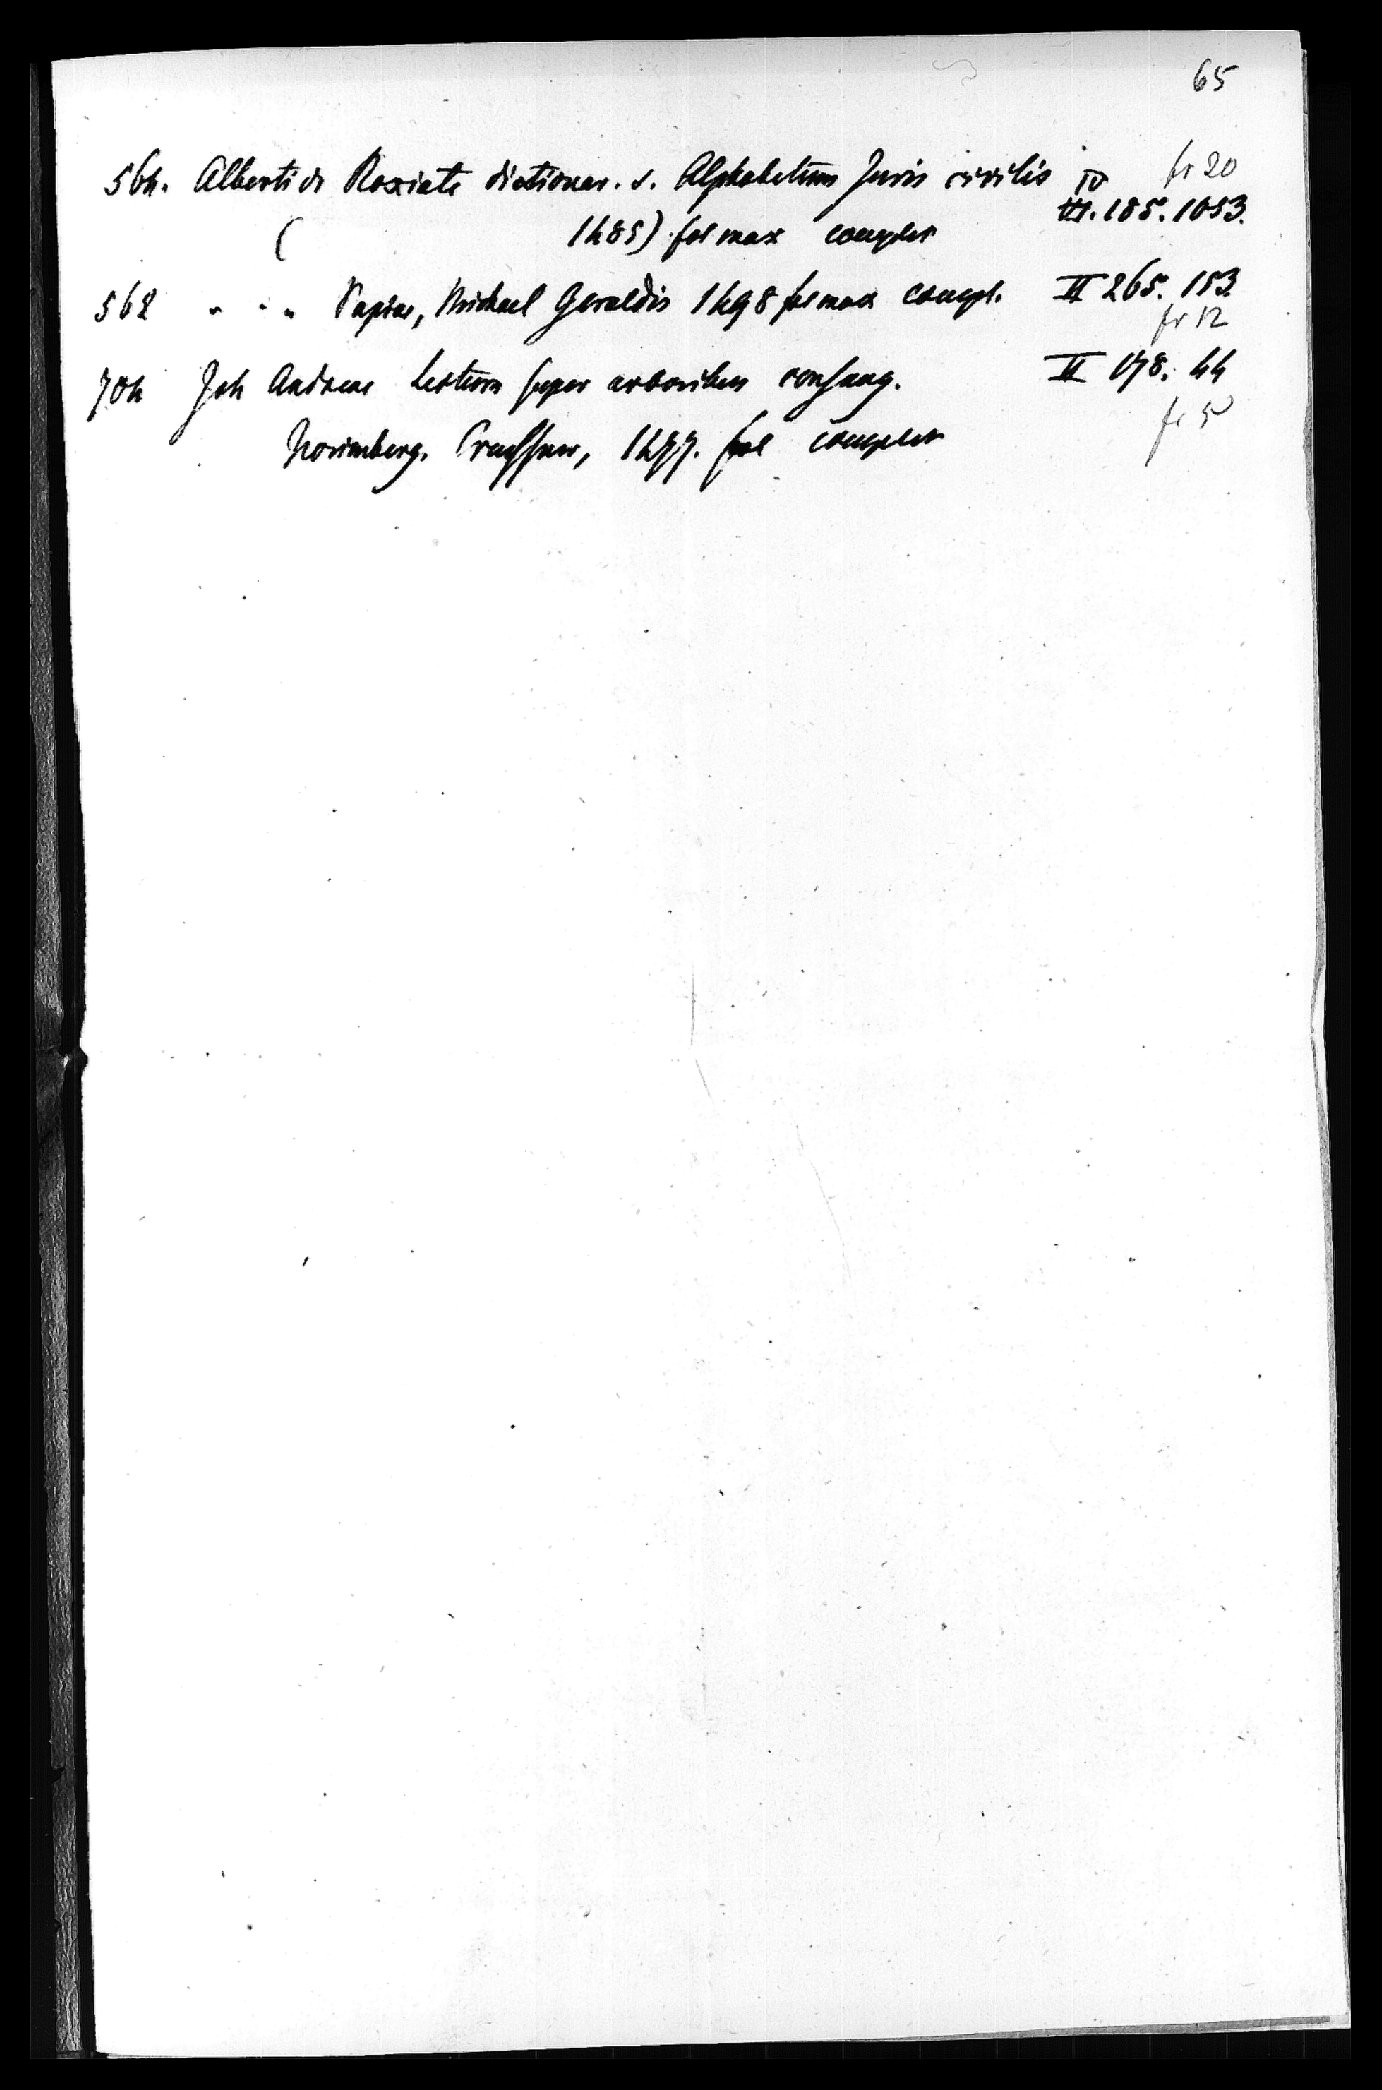 65
564. Alberti de Roxiate dictionar. s. Alphabetum Juris civilis IV fr 20
( 1485) fol max complet III. 185. 1053.
562 " " " Papiae, Michael Geraldis 1498 fol max compl. II 265. 153
fr 12
704 Joh Andreae Lectura super arboribus consang. II 178. 44
Norimberg. Creussner, 1477. fol complet fr 5